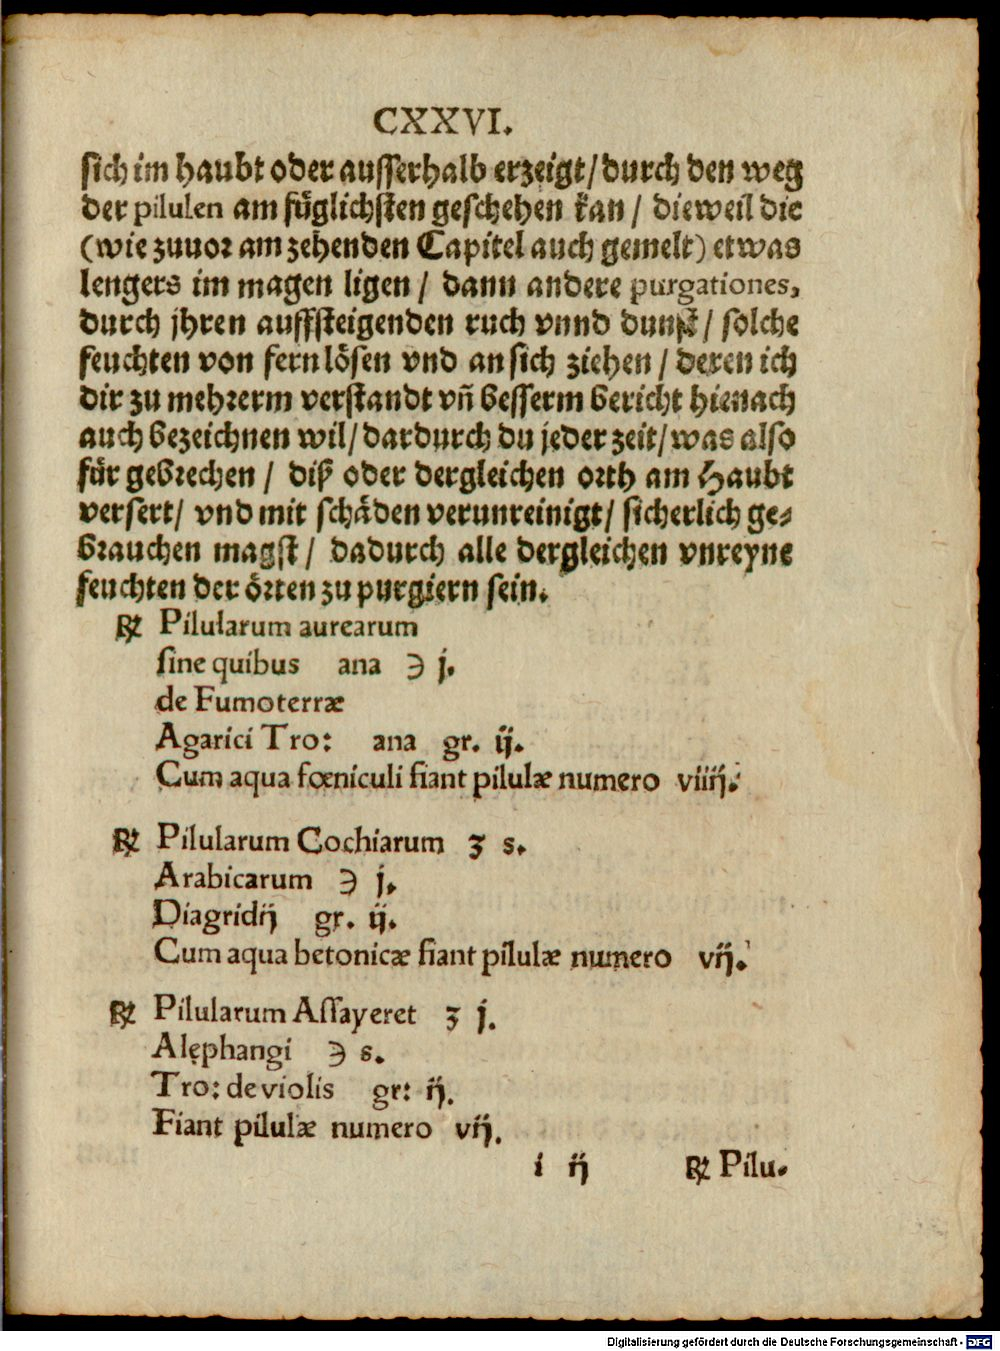 CXXVI.
sich im haubt oder ausserhalb erzeigt/durch den weg
der pilulen am füglichsten geschehen kan / dieweil die
(wie zuuor am zehenden Capitel auch gemelt) etwas
lengers im magen ligen / dann andere purgationes,
durch jhren auffsteigenden ruch vnnd dunst / solche
feuchten von fern lösen vnd an sich ziehen / deren ich
dir zu mehrerm verstandt vñ besserm bericht hienach
auch bezeichnen wil/ dardurch du jeder zeit/ was also
für gebrechen / diß oder dergleichen orth am Haubt
versert/ vnd mit schäden verunreinigt/ sicherlich ge-
brauchen magst / dadurch alle dergleichen vnreyne
feuchten der örten zu purgiern sein.
℞ Pilularum aurearum
sine quibus ana ℈ j.
de Fumoterræ
Agarici Tro: ana gr. ij.
Cum aqua fœniculi fiant pilulæ numero viiij.
℞ Pilularum Cochiarum ʒ s.
Arabicarum ℈ j.
Diagridij gr. ij.
Cum aqua betonicæ fiant pilulæ numero vij.
℞ Pilularum Assayeret ʒ j.
Alephangi ℈ s.
Tro: de violis gr: ij.
Fiant pilulæ numero vij.
i ij ℞ Pilu.
Digitalisierung gefördert durch die Deutsche Forschungsgemeinschaft - DFG